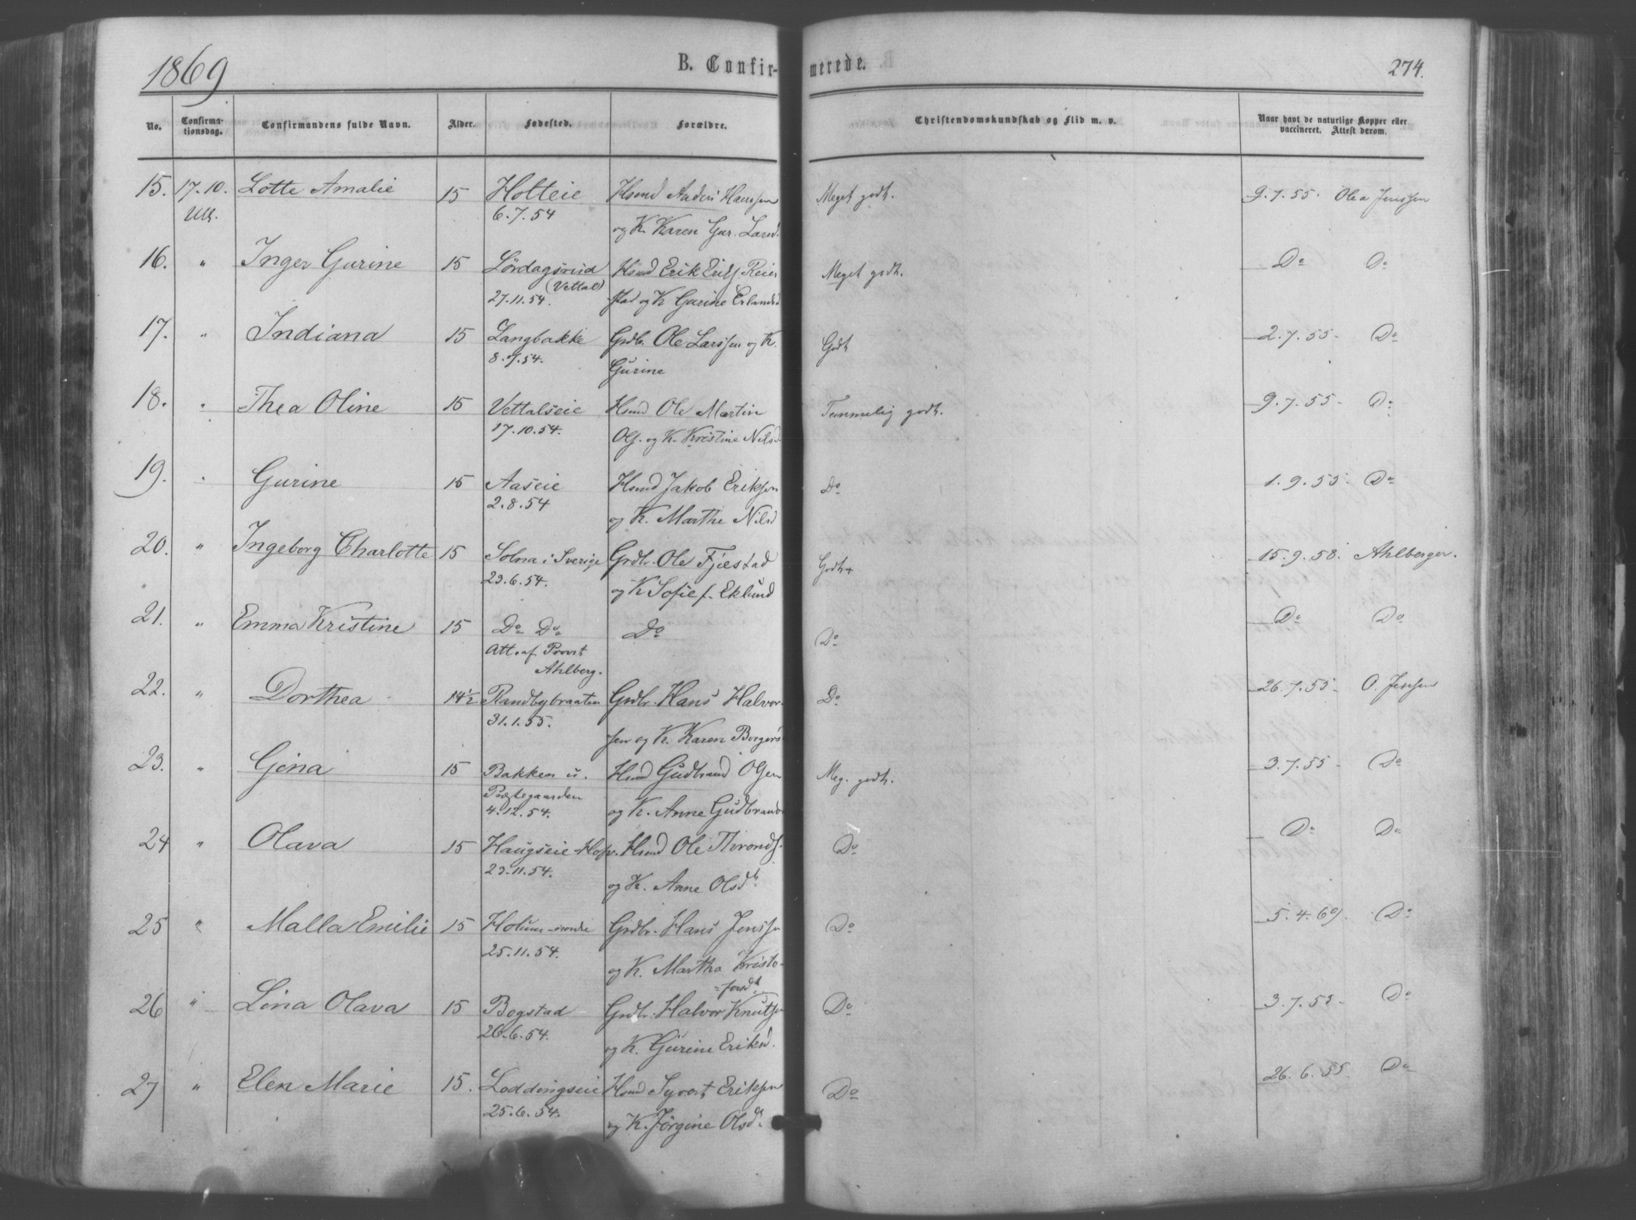 1869 B. Confirmerede. 274.
No. Confirmationsdag. Confirmandens fulde Navn. Alder. Fødested. Forældre. Christendomskundskab og Flid m. v. Naar havt de naturlige Kopper eller vaccineret. Attest derom.
15. 17.10. Lotte Amalie 15 Holteie Hsmd Anders Hanssen Meget godt. 9.7.55. Olea Jenssen
6.7.54 og K. Karen Gur. Larsd.
16. " Inger Gurine 15 Lördagsrud Hsmd Erik Meget godt. Do Do
(Vettal)
27.11.54. stad og K Gurine Erlandsd
17. " Indiana 15 Langbakke Grdbr. Ole Larssen og K. Godt 2.7.55. Do
8.9.54. Gurine
18. " Thea Oline 15 Vettalseie Hsmd Ole Martin Temmelig godt. 9.7.55. Do
17.10.54. Ols. og K. Kristine Nilsd
19. " Gurine 15 Aaseie Hsmd Jakob Eriksen Do 1.9.55. Do
2.8.54 og K. Marthe Nilsd
20. " Ingeborg Charlotte 15 Solna i Sverige Grdbr. Ole Fjæstad Godt 15.9.58. Ahlberger.
23.6.54. og K Sofie f. Eklund
21. " Emma Kristine 15 Do Do Do Do Do Do
Att. af Provst
Ahlberg.
22. " Dorthea 14½ Randbybraaten Grdbr. Hans Halvor- Do 26.7.55. O. Jenssen
31.1.55. sen og K. Karen Borgers
23. " Gina 15 Bakken u. Hsmd Gudbrand Olsen Meg. godt. 3.7.55. Do
Præstegaarden
4.12.54. og K. Anne Gudbrands
24 " Olava 15 Haugseie Hsmd Ole Thronds. Do Do Do
23.11.54. og K. Anne Olsdt.
25 " Malla Emilie 15 Holum Grdbr. Hans Jenssen Do 5.4.69. Do
25.11.54. og K. Martha Kristo-
fersdt
26 " Lina Olava 15 Bogstad Grdbr. Halvor Knutsen Do 3.7.55. Do
20.6.54. og K. Gurine Eriksd.
27 " Elen Marie 15. Loddengseie Hsmd Syvert Eriksen Do 26.6.55. Do
25.6.54. og K. Jørgine Olsdt.